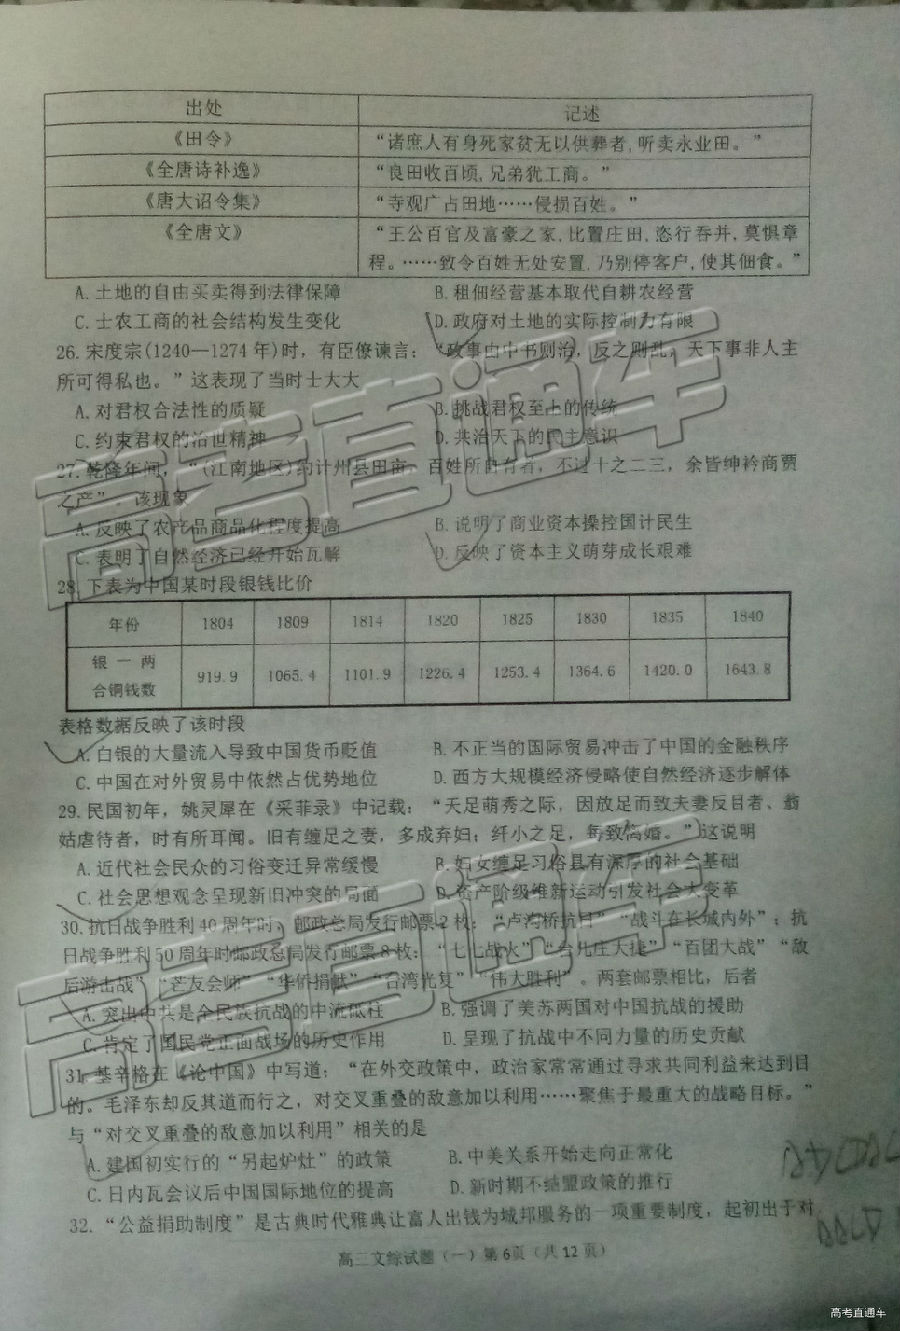 出处 记述
《田令》 “诸庶人有身死家贫无以供葬者,听卖永业田。”
《全唐诗补逸》 “良田收百顷,兄弟犹工商。”
《唐大诏令集》 “寺观广占田地……侵损百姓。”
《全唐文》 “王公百官及富豪之家,比置庄田,恣行吞并,莫惧章
程。……致令百姓无处安置,乃别停客户,使其佃食。”
A.土地的自由买卖得到法律保障 B.租佃经营基本取代自耕农经营
C.士农工商的社会结构发生变化 D.政府对土地的实际控制力有限
26.宋度宗(1240—1274年)时，有臣僚谏言：“政事由中书则治，反之则乱，天下事非人主
所可得私也。”这表现了当时士大夫
A.对君权合法性的质疑 B.挑战君权至上的传统
C.约束君权的治世精神 D.共治天下的民主意识
27.乾隆年间，“(江南地区)约计州县田亩，百姓所自有者，不过十之二三，余皆绅衿商贾
之产”。该现象
A.反映了农产品商品化程度提高 B.说明了商业资本操控国计民生
C.表明了自然经济已经开始瓦解 D.反映了资本主义萌芽成长艰难
28.下表为中国某时段银钱比价
年份 1804 1809 1814 1820 1825 1830 1835 1840
银一两
合铜钱数 919.9 1065.4 1101.9 1226.4 1253.4 1364.6 1420.0 1643.8
表格数据反映了该时段
A.白银的大量流入导致中国货币贬值 B.不正当的国际贸易冲击了中国的金融秩序
C.中国在对外贸易中依然占优势地位 D.西方大规模经济侵略使自然经济逐步解体
29.民国初年，姚灵犀在《采菲录》中记载：“天足萌秀之际，因放足而致夫妻反目者、翁
姑虐待者，时有所耳闻。旧有缠足之妻，多成弃妇；纤小之足，每致离婚。”这说明
A.近代社会民众的习俗变迁异常缓慢 B.妇女缠足习俗具有深厚的社会基础
C.社会思想观念呈现新旧冲突的局面 D.资产阶级维新运动引发社会大变革
30.抗日战争胜利40周年时，邮政总局发行邮票2枚：“卢沟桥抗日”“战斗在长城内外”；抗
日战争胜利50周年时邮政总局发行邮票8枚：“七七战火”“台儿庄大捷”“百团大战”“敌
后游击战”“芒友会师”“华侨捐献”“台湾光复”“伟大胜利”。两套邮票相比，后者
A.突出中共是全民族抗战的中流砥柱 B.强调了美苏两国对中国抗战的援助
C.肯定了国民党正面战场的历史作用 D.呈现了抗战中不同力量的历史贡献
31.基辛格在《论中国》中写道：“在外交政策中，政治家常常通过寻求共同利益来达到目
的。毛泽东却反其道而行之，对交叉重叠的敌意加以利用……聚焦于最重大的战略目标。”
与“对交叉重叠的敌意加以利用”相关的是
A.建国初实行的“另起炉灶”的政策 B.中美关系开始走向正常化
C.日内瓦会议后中国国际地位的提高 D.新时期不结盟政策的推行
32.“公益捐助制度”是古典时代雅典让富人出钱为城邦服务的一项重要制度，起初出于对
高三文综试题（一）第6页（共12页）
高考直通车
高考直通车
高考直通车